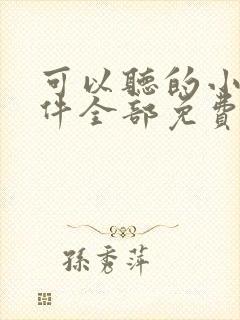 可以聽的小
件全部免費
孫秀萍